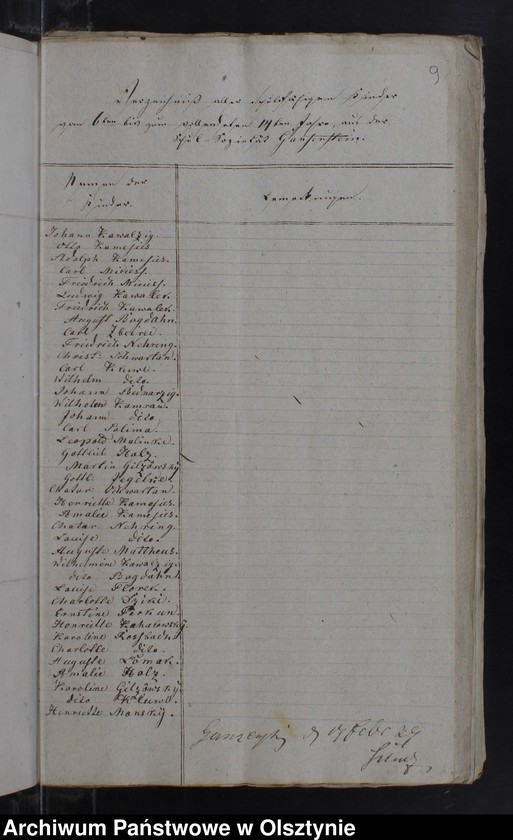 9
Verzeichniß aller schulfähigen Kinder
vom 6ten bis zum vollendeten 14ten Jahre, aus der
Schul-Sozietät
Namen der
Kinder.
Bemerkungen.
Johann Kawalzig.
Otto Kamesies
Adolph Kamesies.
Carl
Friedrich
Ludwig Kawalek.
Friedrich Kawalek.
August Bogdahn.
Carl
Friedrich Nehring.
Christ: Schwartan.
Carl
Wilhelm dito.
Johann Bednarzig.
Wilhelm Kamrau.
Johann dito
Carl Solima.
Leopold Malinka.
Gottlieb Holz.
Martin Gilzowsky
Gottl.
Chatar: Schwartan.
Henriette Kamesies.
Amalie Kamesies.
Chatar: Nehring.
Louise dito.
Auguste Mattheus.
Wilhelmine Kawalzig.
dito Bogdahn.
Louise Florek.
Charlotte
Ernstine
Henriette
Karoline
Charlotte dito.
Auguste
Amalie Holz.
Karoline Gilzowsky.
dito
Henriette Mansky.
d 17 Feb 29
Archiwum Państwowe w Olsztynie